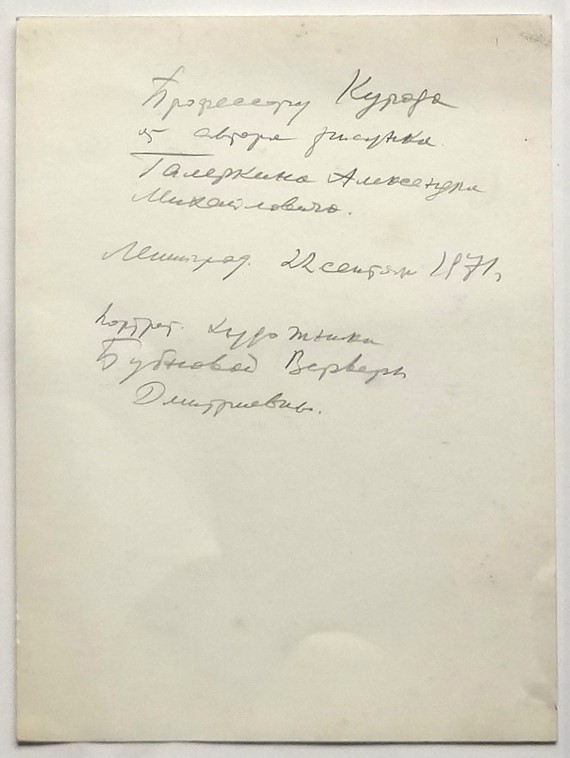 Профессору Курода
от автора рисунка
Галеркина Александра
Михайловича.
Ленинград. 22 сентября 1971г.
Портрет художника
Бубновой Варвары
Дмитриевны.